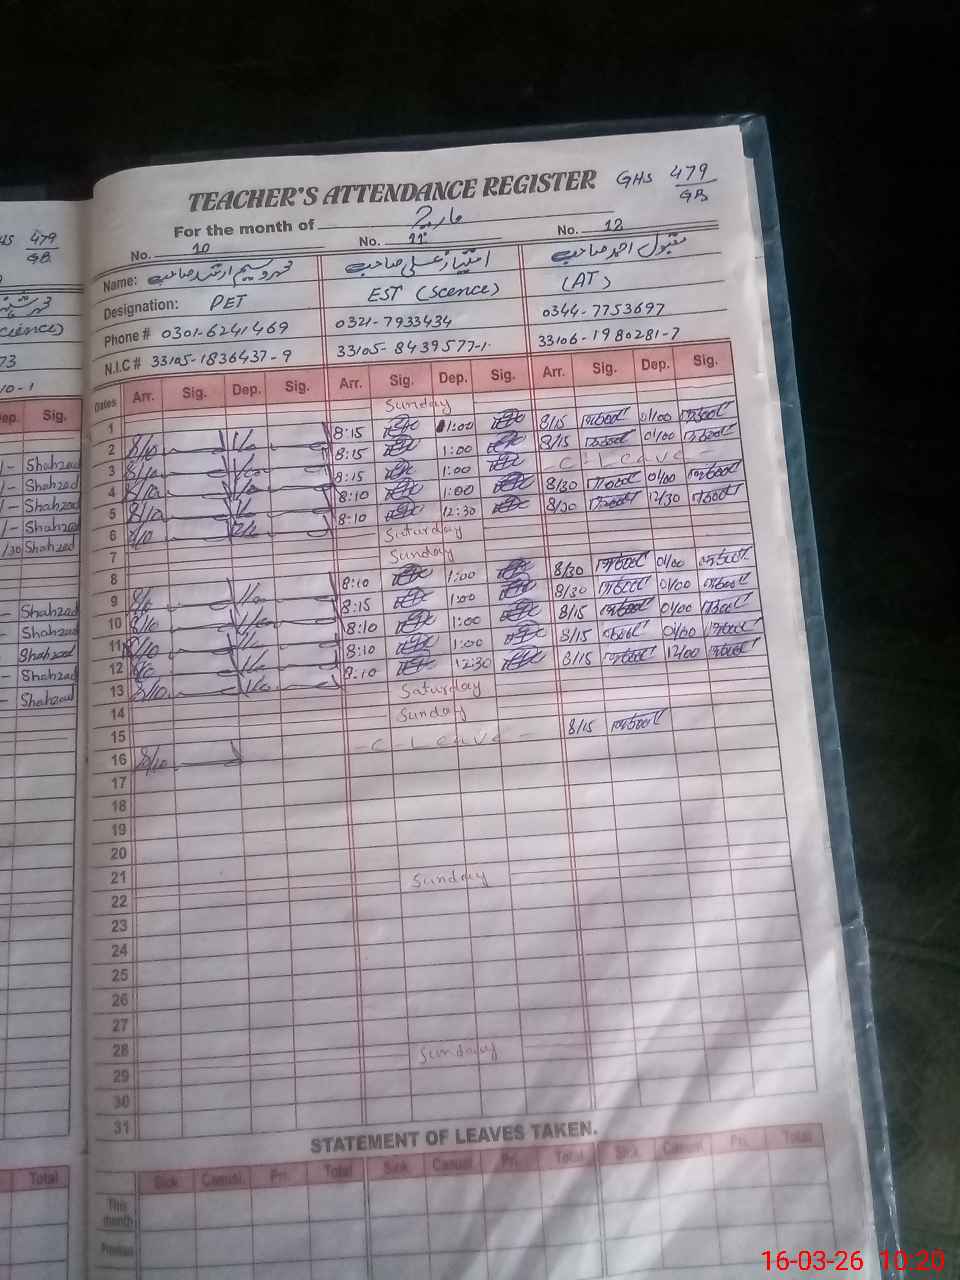 TEACHER'S ATTENDANCE REGISTER GHS 479/GB
For the month of مارچ
No. 10 No. 11 No. 12
Name: محمد وسیم ارشد صاحب امتیاز علی صاحب مقبول احمد صاحب
Designation: PET EST (Scence) (AT)
Phone # 0301-6241469 0321-7933434 0344-7753697
N.I.C # 33105-1836437-9 33105-8439577-1 33106-1980281-7
Dates Arr. Sig. Dep. Sig. Arr. Sig. Dep. Sig. Arr. Sig. Dep. Sig.
1 Sunday
2 8/10 1/0 8:15 1:00 8/15 01/00
3 8/10 1/0 8:15 1:00 8/15 01/00
4 8/10 1/0 8:15 1:00 - C - Leave -
5 8/10 8:10 1:00 8/30 01/00
6 8/10 8:10 12:30 8/30 12/30
7 Saturday
8 Sunday
9 8/10 1/0 8:10 1:00 8/30 01/00
10 8/10 1/0 8:15 1:00 8/30 01/00
11 8/10 1/0 8:10 1:00 8/15 01/00
12 8/10 1/0 8:10 1:00 8/15 01/00
13 8/10 1/0 8:10 12:30 8/15 12/00
14 Saturday
15 Sunday
16 8/10 - C - Leave - 8/15
17
18
19
20
21
22 Sunday
23
24
25
26
27
28
29 Sunday
30
31
STATEMENT OF LEAVES TAKEN.
Sick Casual Pri. Total Sick Casual Pri. Total Sick Casual Pri. Total
This month
Previous
GHS 479/GB
Dep. Sig.
Shahzad
Shahzad
Shahzad
Shahzad
Shahzad
Shahzad
Shahzad
Shahzad
Shahzad
Shahzad
Total
16-03-26 10:20